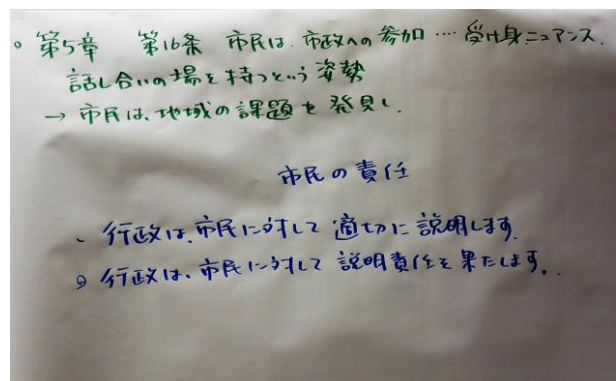 。第5章 第16条 市民は、市政への参加…受け身ニュアンス.
話し合いの場を持つという姿勢
→ 市民は、地域の課題を発見し、
市民の責任
、行政は、市民に対して適切に説明します。
。行政は、市民に対して説明責任を果たします。